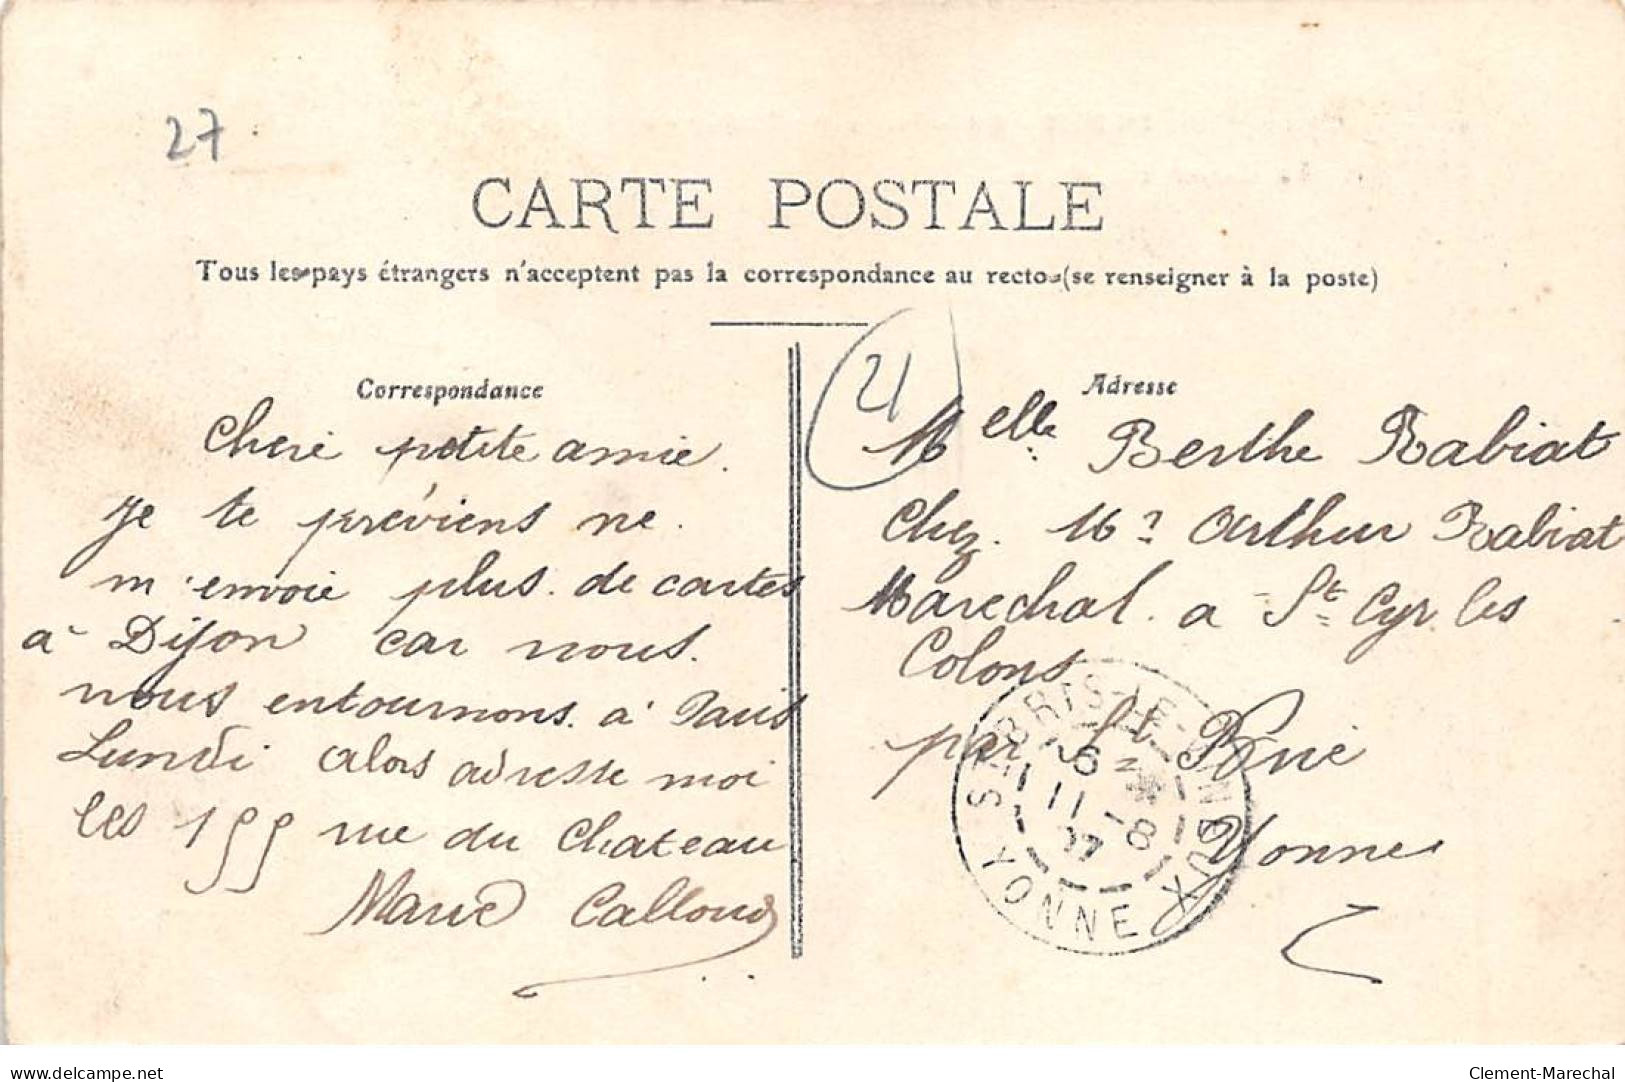 27
CARTE POSTALE
Tous les pays étrangers n'acceptent pas la correspondance au recto (se renseigner à la poste)
Correspondance
Cheri petite amie.
Je te préviens ne.
m'envoie plus. de cartes
à Dijon car nous.
nous entournons. à Paris
Lundi alors adresse moi
les 155 rue du Chateau
Marie Calloud
21
Adresse
Melle Berthe Rabiat
Chez. Mr Arthur Rabiat
Marechal. a St Cyr les
Colons
par St Brie
Yonne
ST BRIS-LE-VINEUX
6
11 - 8
07
YONNE
delcampe.net
Clement-Marechal